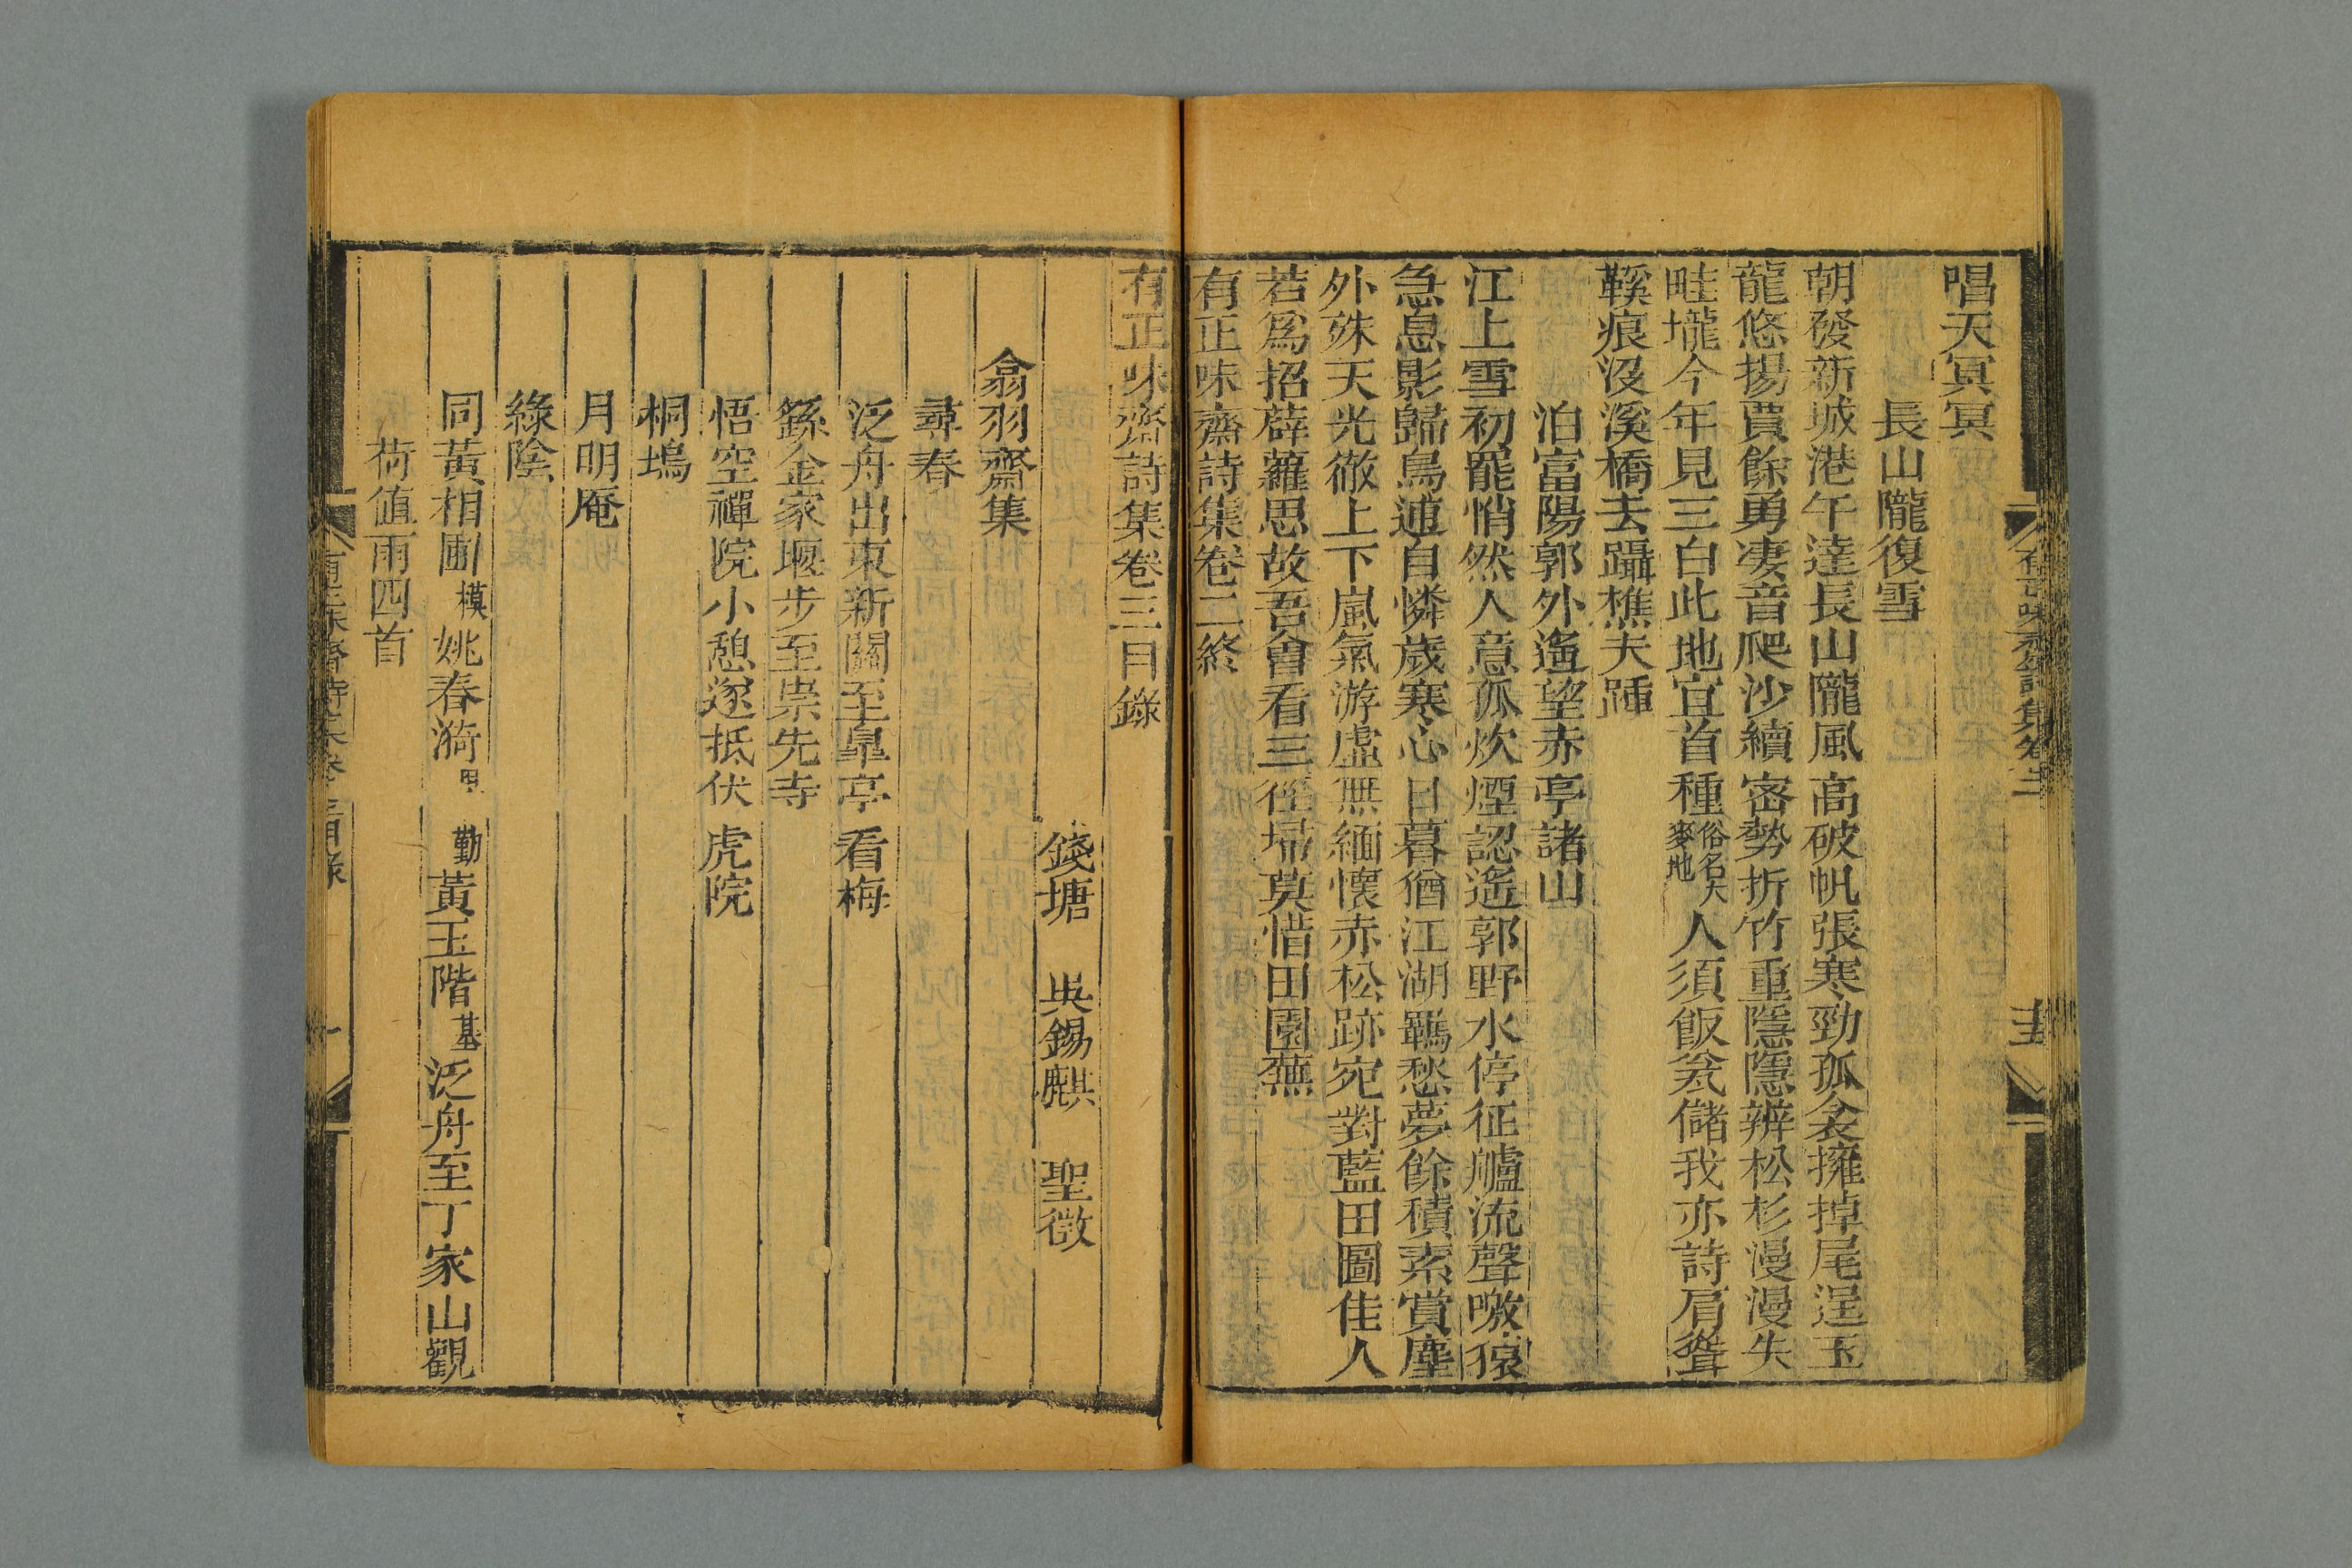 唱天冥冥
長山隴復雪
朝發新城港午達長山隴風高破帆張寒勁孤衾擁掉尾逞玉
龍悠揚賈餘勇凄音爬沙續密勢折竹重隱隱辨松杉漫漫失
畦壠今年見三白此地宜首種俗名大麥地人須飯瓮儲我亦詩肩聳
鞵痕沒溪橋去躡樵夫踵
泊富陽郭外遙望赤亭諸山
江上雪初罷悄然人意孤炊煙認遙郭野水停征艫流聲噭猿
急息影歸鳥逋自憐歲寒心日暮猶江湖羈愁夢餘積素賞塵
外殊天光徹上下嵐氣游虛無緬懷赤松跡宛對藍田圖佳人
若爲招薜蘿思故吾會看三徑埽莫惜田園蕪
有正味齋詩集卷二終
有正味齋詩集卷三目錄
錢塘 吳錫麒 聖徵
翕羽齋集
尋春
泛舟出東新關至皐亭看梅
繇金家堰步至崇先寺
悟空禪院小憩遂抵伏虎院
桐塢
月明庵
綠陰
同黃相圃模姚春漪 勤黃玉階基泛舟至丁家山觀
荷值雨四首